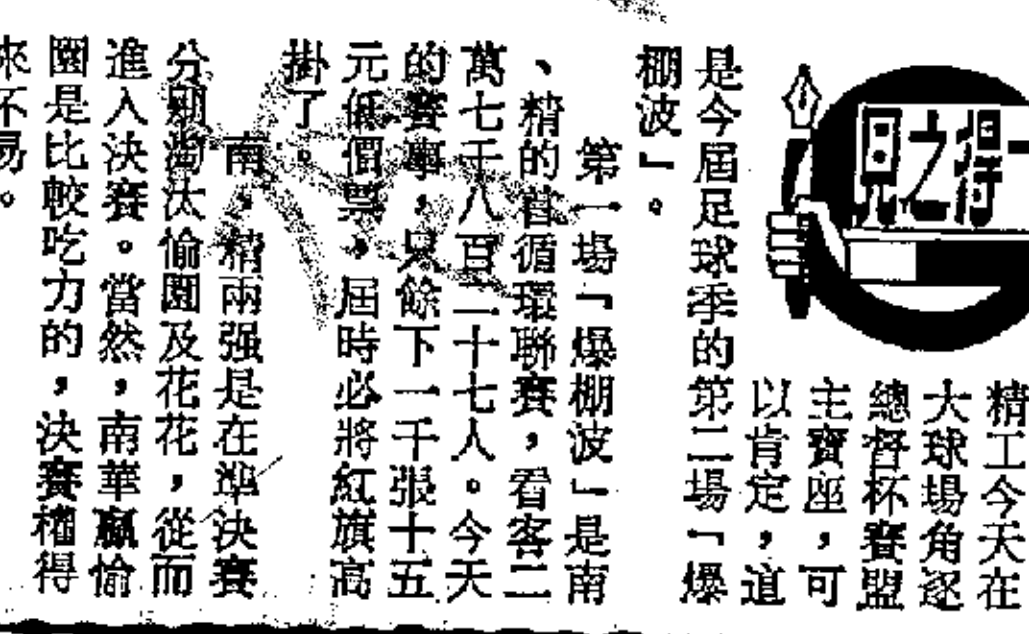 一得之見
精工今天在
大球場角逐
總督杯賽盟
主寶座，可
以肯定，道
是今屆足球季的第二場「爆
棚波」。
第一場「爆棚波」是南
、精的首循環聯賽，看客二
萬七千八百二十七人。今天
的賽事，只餘下一千張十五
元低價票，屆時必將紅旗高
掛了。
南，精兩强是在準決賽
分別淘汰愉園及花花，從而
進入決賽。當然，南華贏愉
園是比較吃力的，決賽權得
來不易。